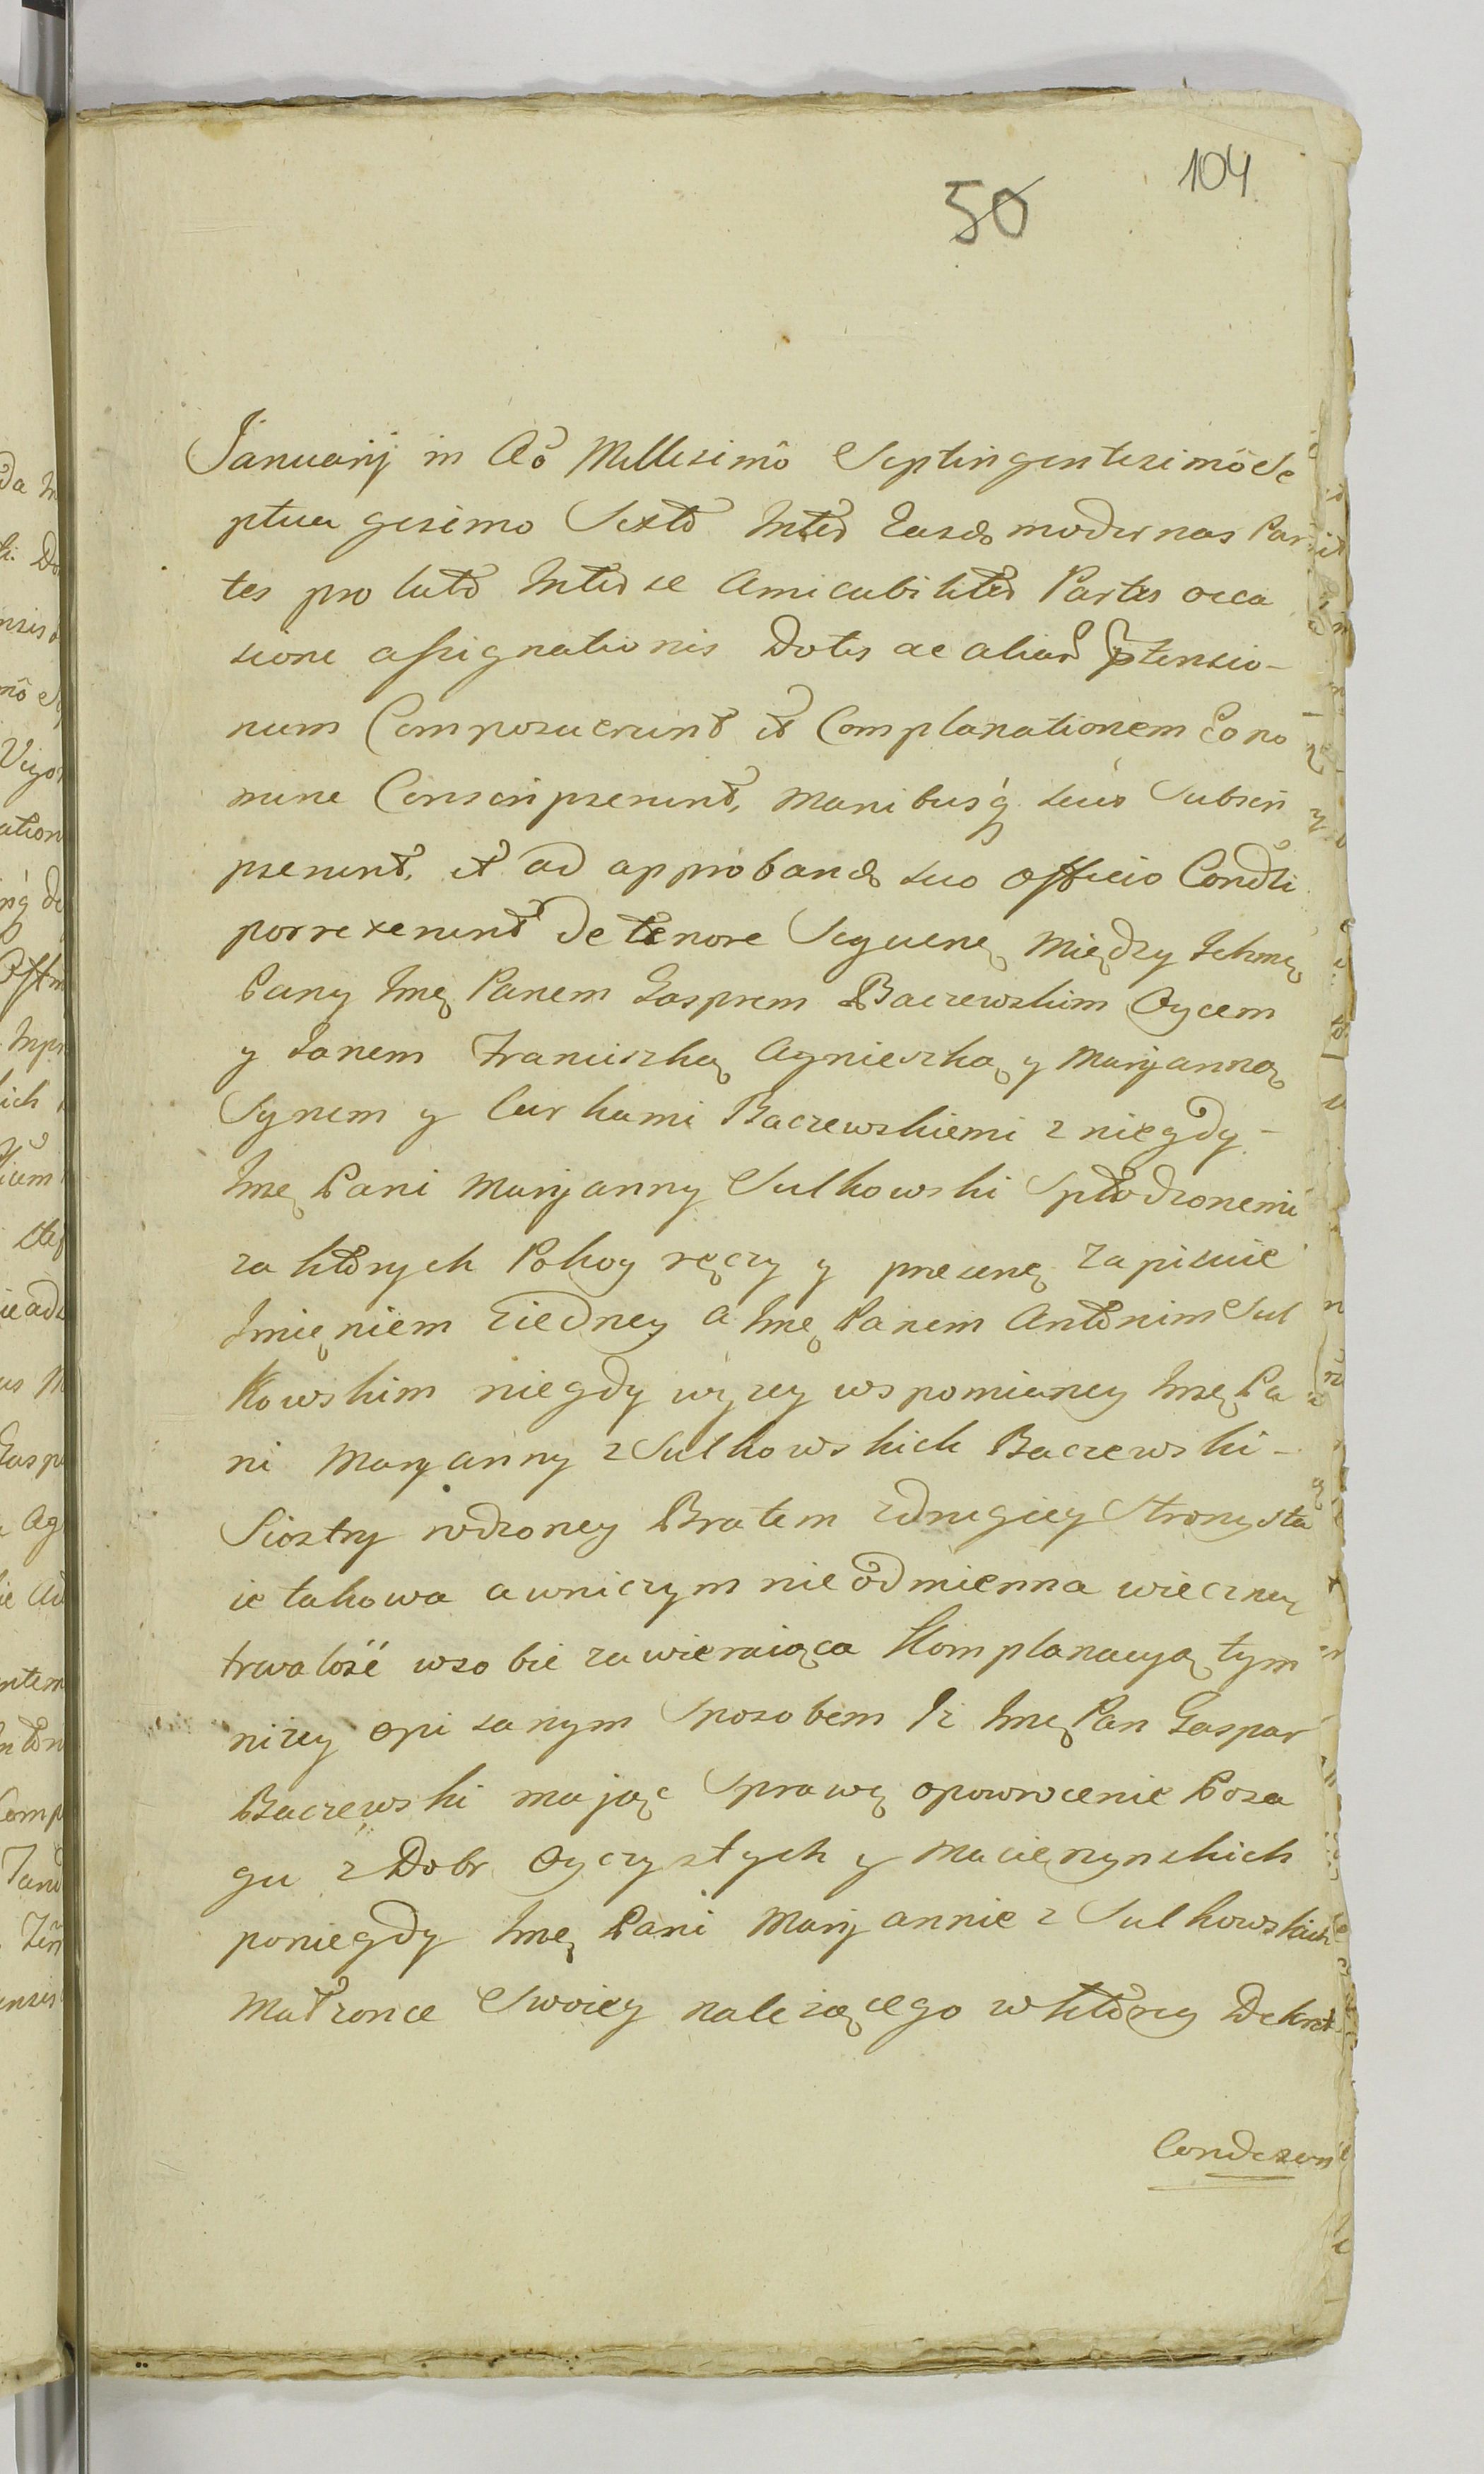 104
50
Januarij in Aō Millesimô Septingentesimô Se
ptuagesimo Sexto Inter Easd modernas Par
tes pro lato Inter se Amicabiliter Partes occa
sione assignationis Dotis ac aliar ptensio-
num Composuerunt et Complanationem Eo no
mine Conscripserunt, Manibusq suis Subscri
pserunt, et ad approband suo Officio Condti
porrexerunt de tenore Sequenę Między Ichmę
Pany Imę Panem Gasprem Baczewskim Oycem
y Janem Franciszką Agnieszką y Maryanną
Synem y Curkami Baczewskiemi z niegdy-
Imę Pani Maryanny Sulkowski Spłodzonemi
za ktorych Pokoy ręczy y presenę zapisuie
Imięniem ziedney a Imę Panem Antonim Sul
Kowskim niegdy wyzey wspomianey Imę Pa
ni Maryanny z Sulkowskich Baczewski-
Siostry rodzoney Bratem zdrugiey Strony sta
ie takowa awniczym nie odmienna wieczney
trwalość wsobie zawieraiąca Komplanacyą tym
nizey opisanym Sposobem Iz Imę Pan Gaspar
Baczewski mając Sprawę opowrocenie Posa
gu z Dobr Oyczystych y Macierzynskich
poniegdy Imę Pani Maryannie z Sulkowskich
Małzonce Swoiey nalezącego w ktorey Dekret
Condescen